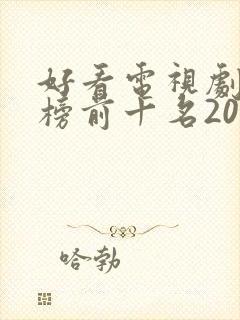 好看電視劇
榜前十名20
哈勃